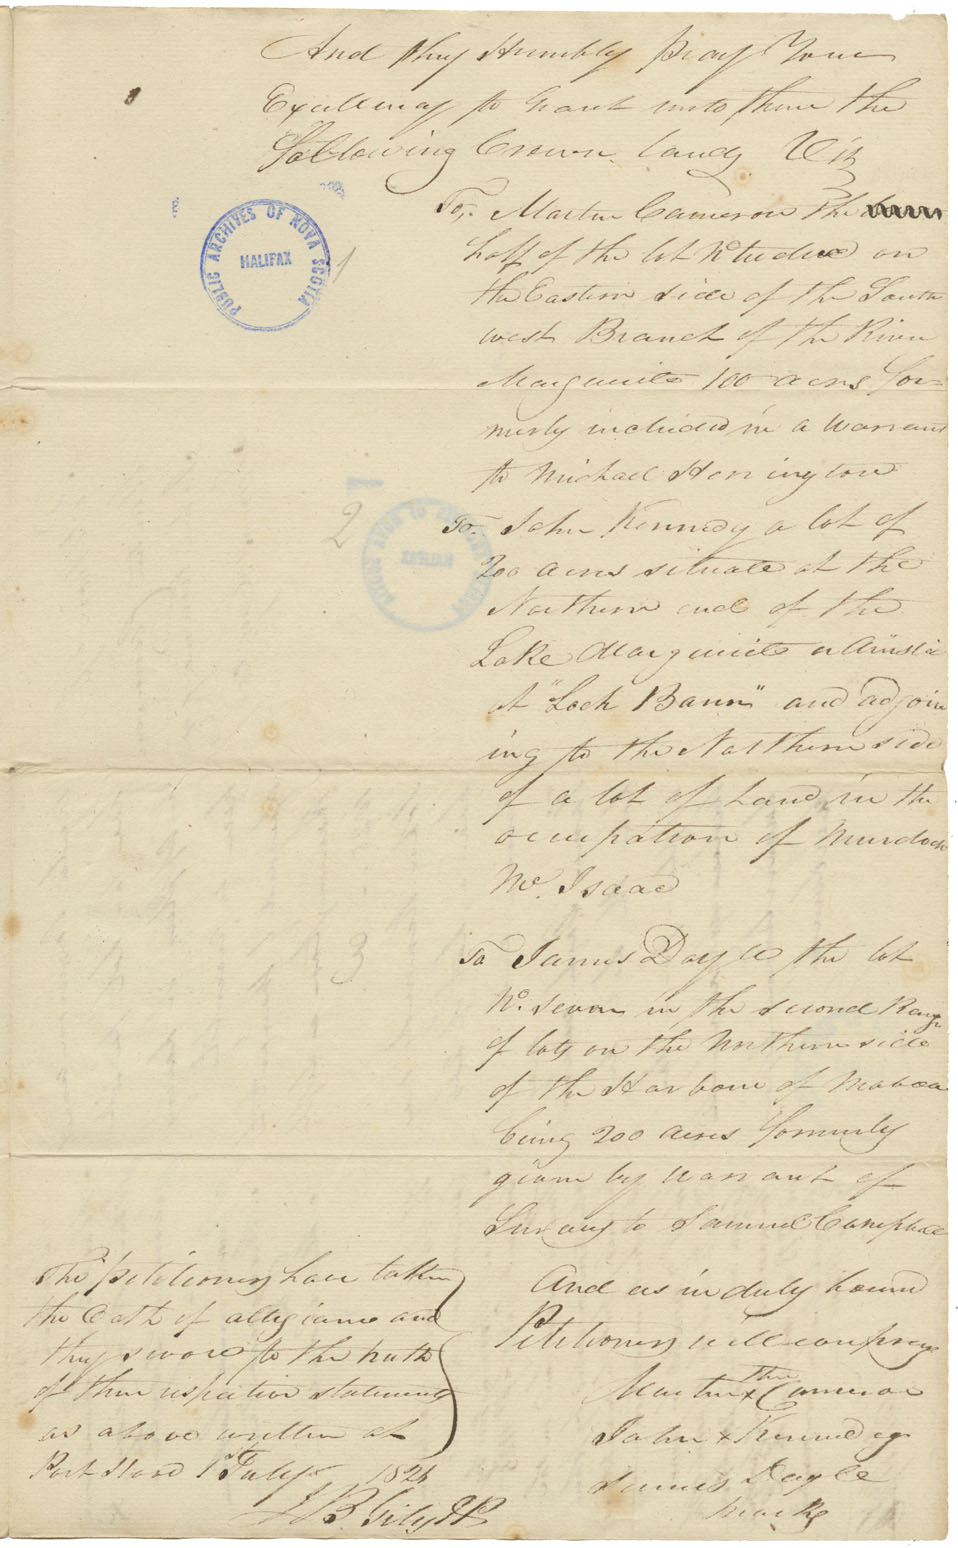 And they Humbly pray Your
Excellency to Grant unto them the
following Crown lands Viz
To. Martin Cameron the
half of the lot No. twelve on
the Eastern side of the South
west Branch of the River
Marguerite 100 acres for=
merly included in a Warrant
to Michael Herrington
To. John Kennedy a lot of
200 acres situate at the
Northern end of the
Lake Marguerite or Ainslie
at "Loch Bann" and adjoin
ing to the Northern side
of a lot of Land in the
occupation of Murdoch
Mc. Isaac
To James Doyle the lot
No. seven in the second Range
of lots on the Northern side
of the Harbour of Mabou
being 200 acres formerly
given by warrant of
Survey to Samuel Campbell
And as in duly bound
Petitioners will ever pray
their
Martin x Cameron
John x Kennedy
James Doyle
marks
The petitioners have taken
the Oath of allegiance and
they swore to the truth
of their respective statements
as above written at
Port Hood 1st July 1826
PUBLIC ARCHIVES OF NOVA SCOTIA
HALIFAX
1
2
3